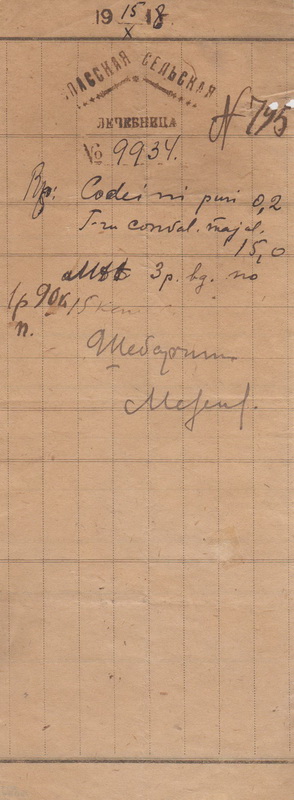 19 15/X 18
СПАССКАЯ СЕЛЬСКАЯ
ЛЕЧЕБНИЦА
N 795
№ 9934.
Rp: Codeini puri 0,2
T-rae conval. majal.
15,0
3 р. вд. по
1р 90к 15 кап
п.